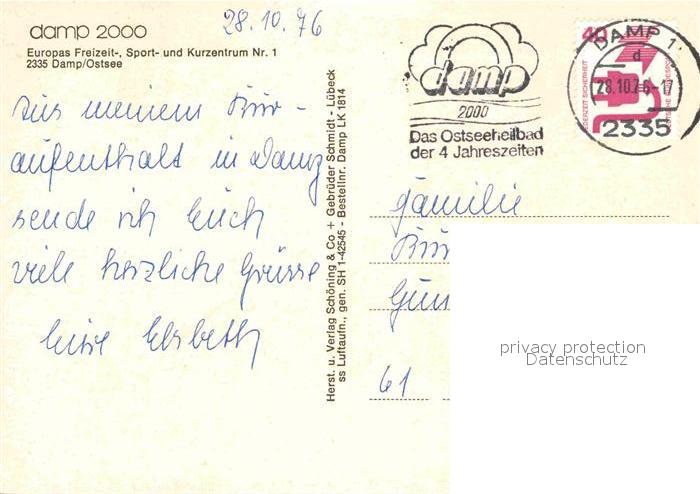 damp 2000
Europas Freizeit-, Sport- und Kurzentrum Nr. 1
2335 Damp/Ostsee
28.10.76
Aus meinem Kur-
aufenthalt in Damp
sende ich Euch
viele herzliche Grüsse
Eure Elsbeth
Herst. u. Verlag Schöning & Co + Gebrüder Schmidt - Lübeck
ss Luftaufn., gen. SH 1-42545 - Bestellnr. Damp LK 1814
damp
2000
Das Ostseeheilbad
der 4 Jahreszeiten
40
JEDERZEIT SICHERHEIT
DEUTSCHE BUNDESPOST
DAMP 1
d
28.10.76-17
2335
Familie
61
privacy protection
Datenschutz